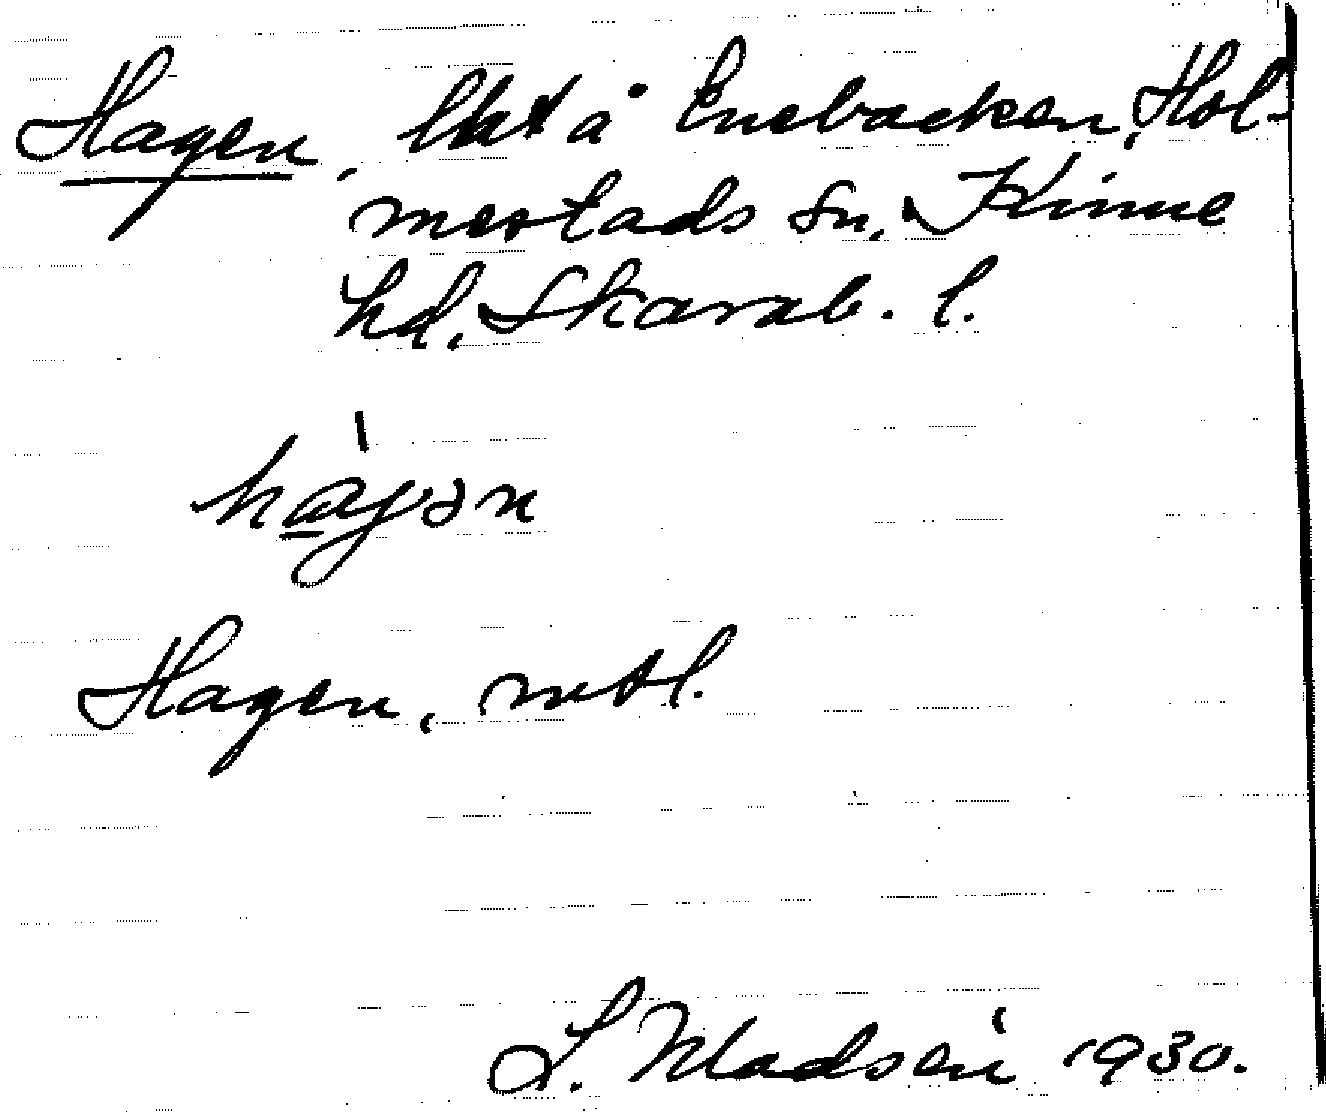 Hagen, lht å Enebacken, Hol-
mestads sn, Kinne
hd. Skarab. l.
hàgən
Hagen, mtl.
S. Madsén 1930.